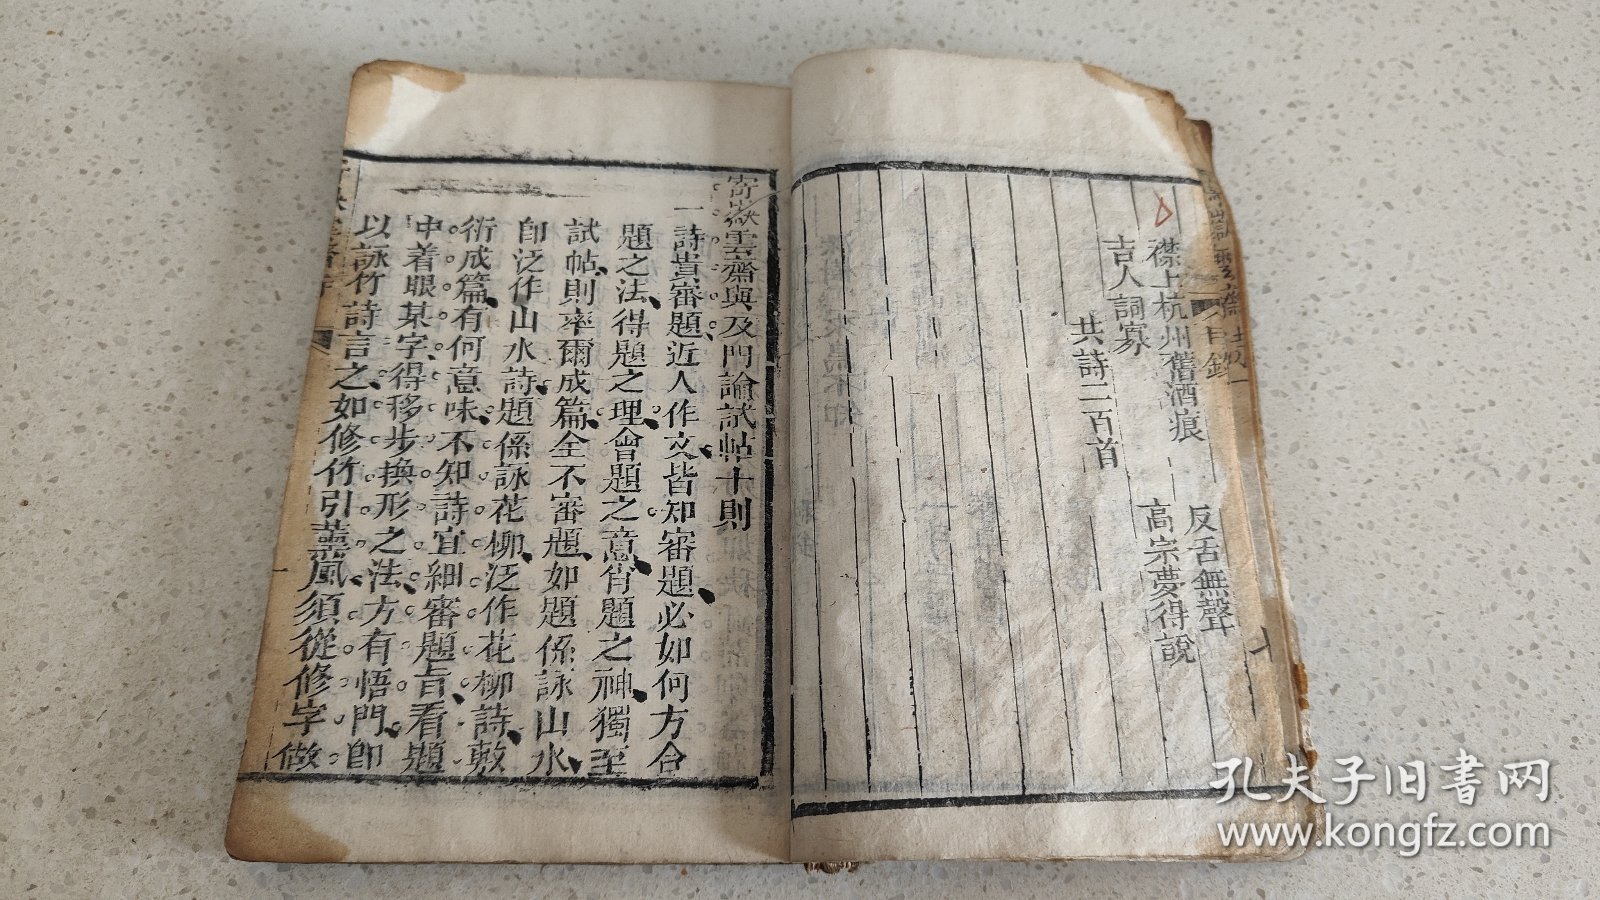 襟上杭州舊酒痕
反舌無聲
吉人詞寡
高宗夢得說
共詩二百首
目錄
寄嶽雲齋與及門論試帖十則
一詩貴審題近人作文皆知審題必如何方合
題之法得題之理會題之意肖題之神獨至
試帖則率爾成篇全不審題如題係詠山水
卽泛作山水詩題係詠花柳泛作花柳詩敷
衍成篇有何意味不知詩宜細審題旨看題
中着眼某字得移步換形之法方有悟門卽
以詠竹詩言之如修竹引薰風須從修字做
孔夫子旧书网
www.kongfz.com